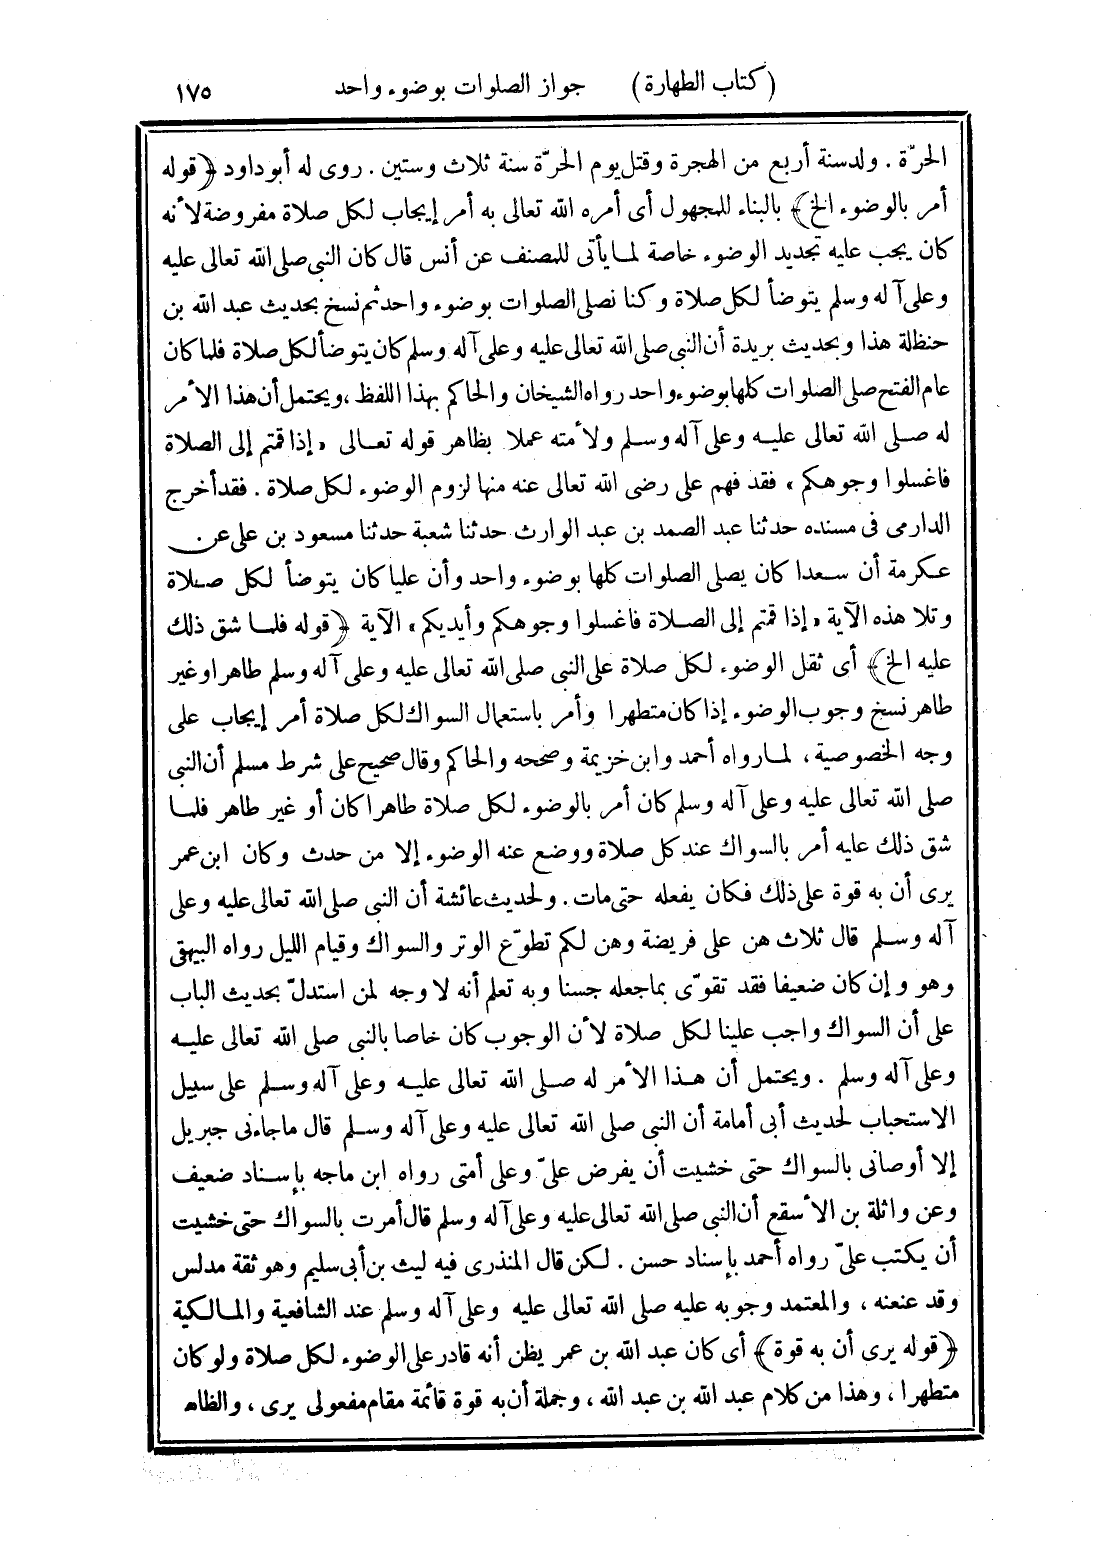 (كتاب الطهارة) جواز الصلوات بوضوء واحد ١٧٥
الحرّة . ولد سنة أربع من الهجرة وقتل يوم الحرّة سنة ثلاث وستين . روى له أبو داود ﴿قوله
أمر بالوضوء الخ﴾ بالبناء للمجهول أى أمره الله تعالى به أمر إيجاب لكل صلاة مفروضة لأنه
كان يجب عليه تجديد الوضوء خاصة لما يأتى للمصنف عن أنس قال كان النبى صلى الله تعالى عليه
وعلى آله وسلم يتوضأ لكل صلاة وكنا نصلى الصلوات بوضوء واحد ثم نسخ بحديث عبد الله بن
حنظلة هذا وبحديث بريدة أن النبى صلى الله تعالى عليه وعلى آله وسلم كان يتوضأ لكل صلاة فلما كان
عام الفتح صلى الصلوات كلها بوضوء واحد رواه الشيخان والحاكم بهذا اللفظ ، ويحتمل أن هذا الأمر
له صلى الله تعالى عليه وعلى آله وسلم ولأمته عملا بظاهر قوله تعالى « إذا قمتم إلى الصلاة
فاغسلوا وجوهكم » فقد فهم على رضى الله تعالى عنه منها لزوم الوضوء لكل صلاة . فقد أخرج
الدارمى فى مسنده حدثنا عبد الصمد بن عبد الوارث حدثنا شعبة حدثنا مسعود بن على عن
عكرمة أن سعدا كان يصلى الصلوات كلها بوضوء واحد وأن عليا كان يتوضأ لكل صلاة
وتلا هذه الآية « إذا قمتم إلى الصلاة فاغسلوا وجوهكم وأيديكم » الآية ﴿قوله فلما شق ذلك
عليه الخ﴾ أى ثقل الوضوء لكل صلاة على النبى صلى الله تعالى عليه وعلى آله وسلم طاهرا وغير
طاهر نسخ وجوب الوضوء إذا كان متطهرا وأمر باستعمال السواك لكل صلاة أمر إيجاب على
وجه الخصوصية ، لما رواه أحمد وابن خزيمة وصححه والحاكم وقال صحيح على شرط مسلم أن النبى
صلى الله تعالى عليه وعلى آله وسلم كان أمر بالوضوء لكل صلاة طاهرا كان أو غير طاهر فلما
شق ذلك عليه أمر بالسواك عند كل صلاة ووضع عنه الوضوء إلا من حدث وكان ابن عمر
يرى أن به قوة على ذلك فكان يفعله حتى مات . ولحديث عائشة أن النبى صلى الله تعالى عليه وعلى
آله وسلم قال ثلاث هن على فريضة وهن لكم تطوّع الوتر والسواك وقيام الليل رواه البيهقى
وهو وإن كان ضعيفا فقد تقوّى بما جعله حسنا وبه تعلم أنه لا وجه لمن استدلّ بحديث الباب
على أن السواك واجب علينا لكل صلاة لأن الوجوب كان خاصا بالنبى صلى الله تعالى عليه
وعلى آله وسلم . ويحتمل أن هذا الأمر له صلى الله تعالى عليه وعلى آله وسلم على سبيل
الاستحباب لحديث أبى أمامة أن النبى صلى الله تعالى عليه وعلى آله وسلم قال ما جاءنى جبريل
إلا أوصانى بالسواك حتى خشيت أن يفرض علىّ وعلى أمتى رواه ابن ماجه بإسناد ضعيف
وعن واثلة بن الأسقع أن النبى صلى الله تعالى عليه وعلى آله وسلم قال أمرت بالسواك حتى خشيت
أن يكتب علىّ رواه أحمد بإسناد حسن . لكن قال المنذرى فيه ليث بن أبى سليم وهو ثقة مدلس
وقد عنعنه ، والمعتمد وجوبه عليه صلى الله تعالى عليه وعلى آله وسلم عند الشافعية والمالكية
﴿قوله يرى أن به قوة﴾ أى كان عبد الله بن عمر يظن أنه قادر على الوضوء لكل صلاة ولو كان
متطهرا ، وهذا من كلام عبد الله بن عبد الله ، وجملة أن به قوة قائمة مقام مفعولى يرى ، والظاهر